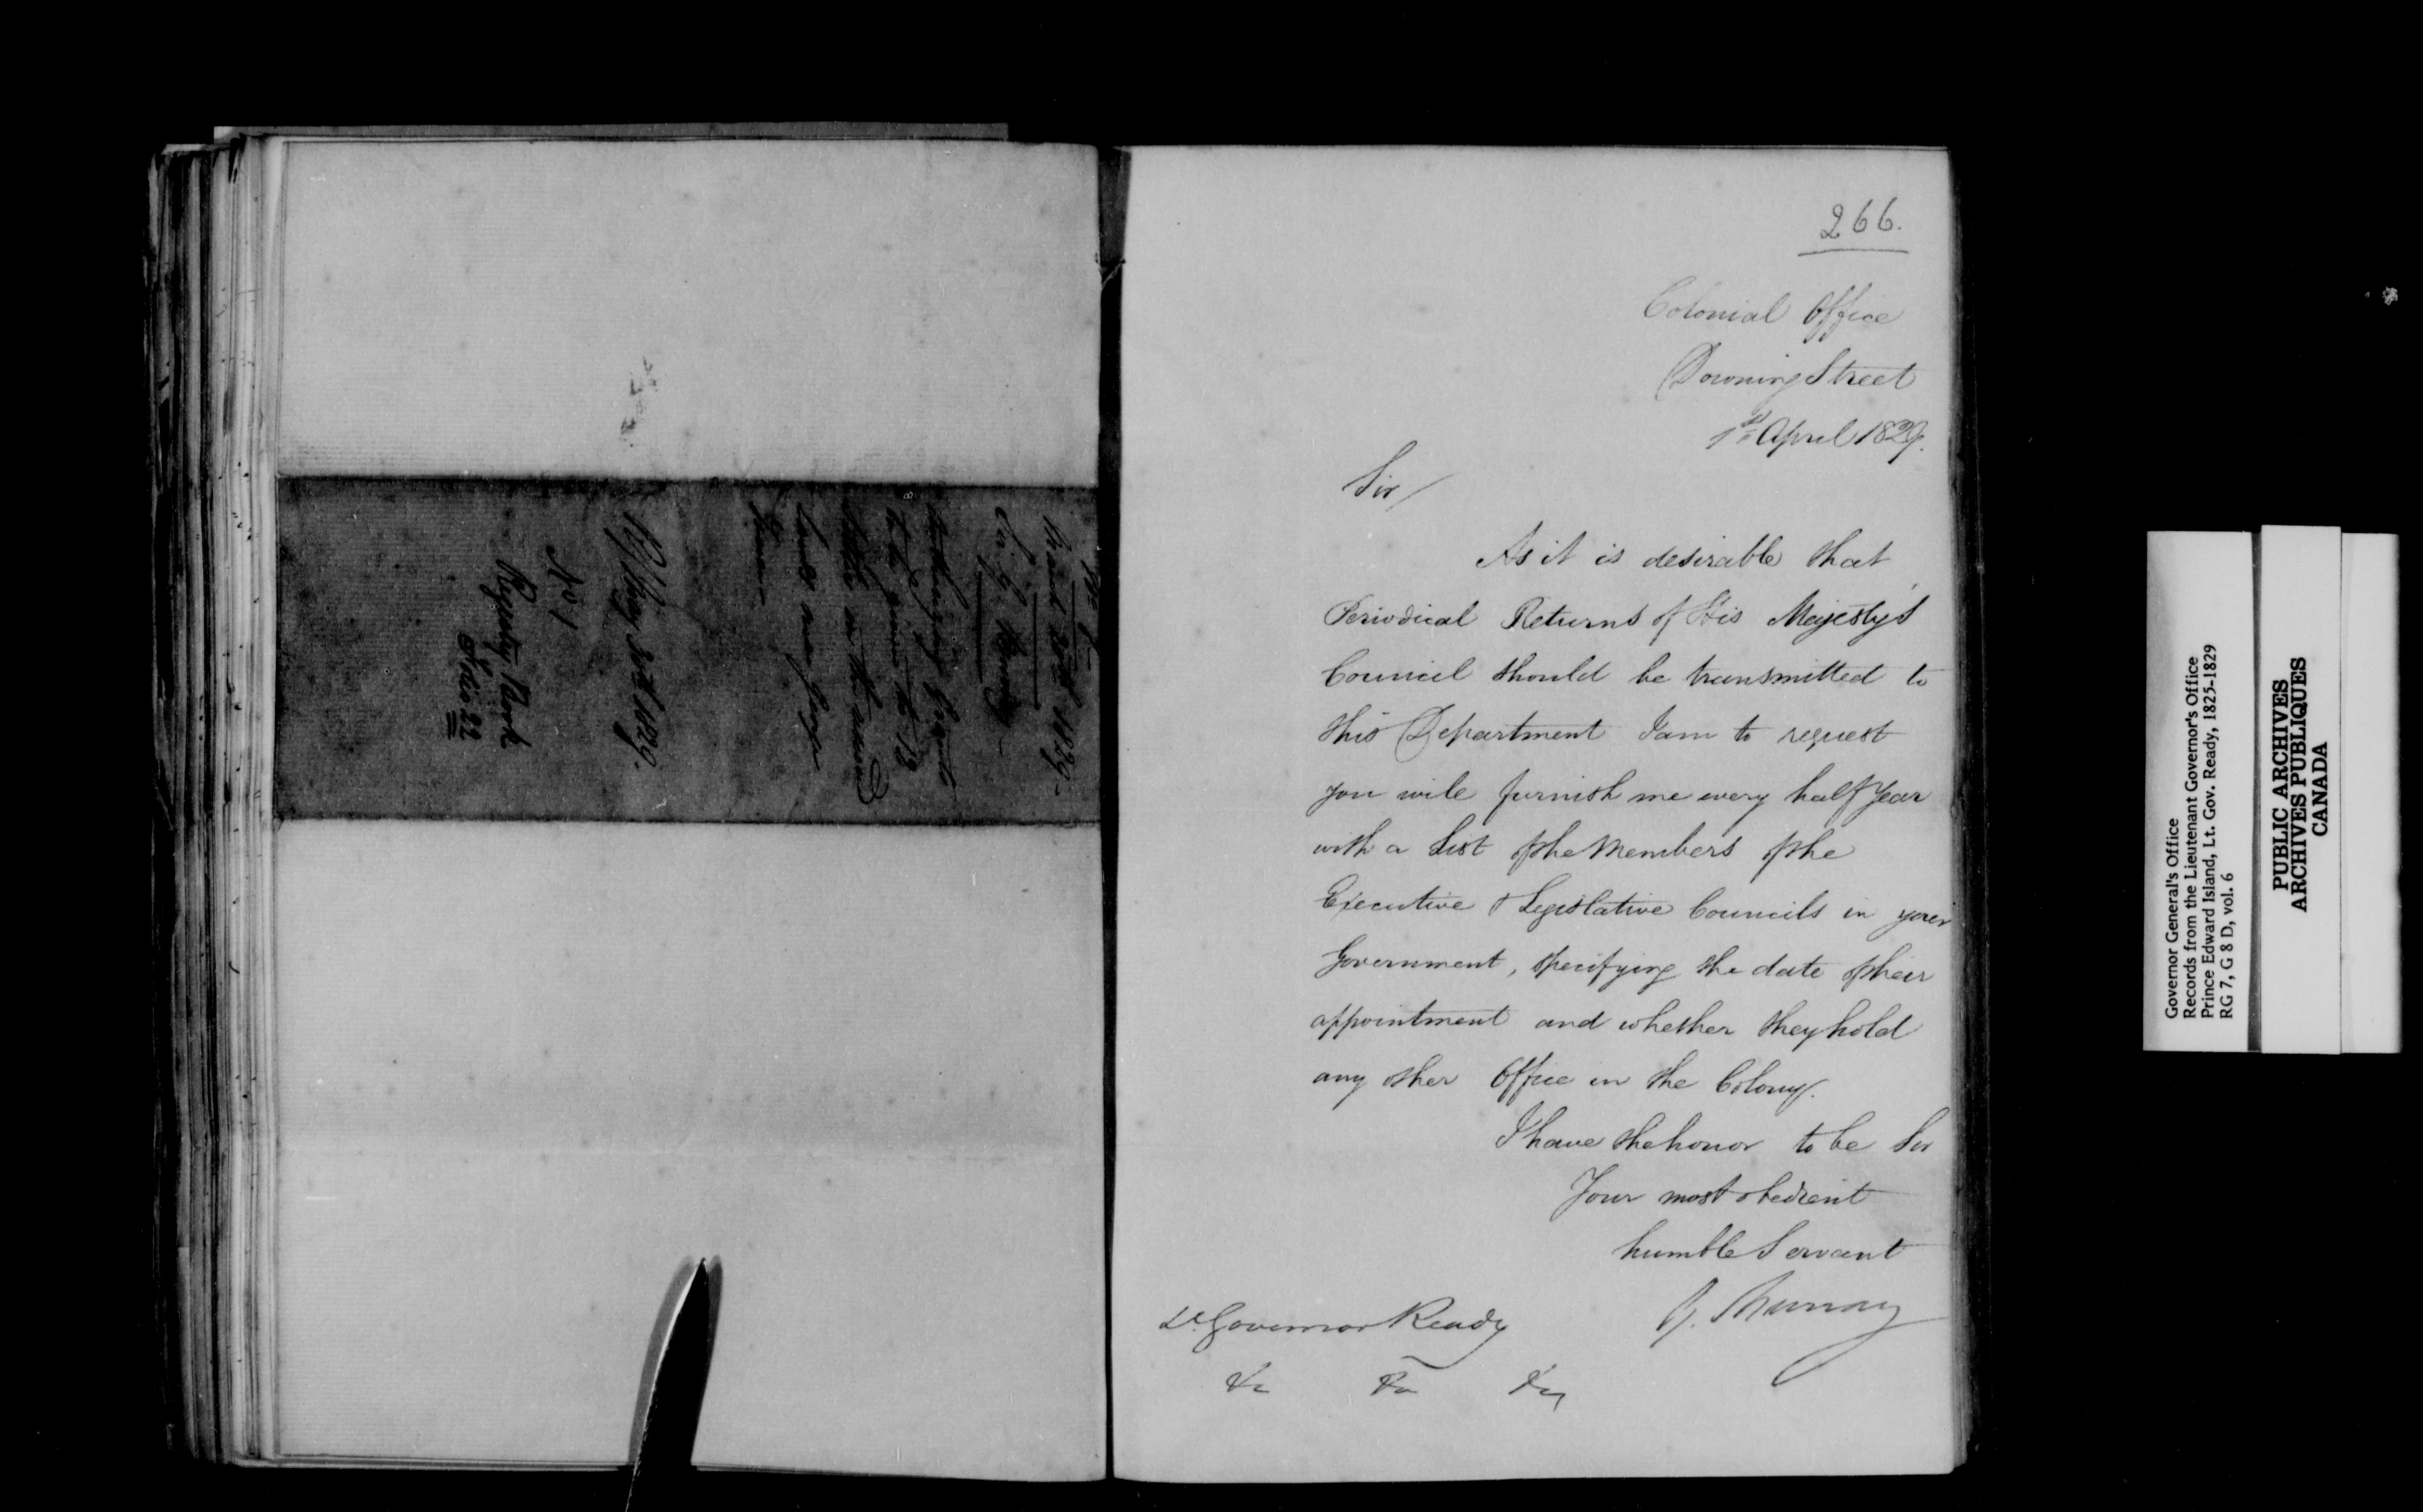 No 1
Registry Book
Folio 22
266.
Colonial Office
Downing Street
1st April 1829.
Sir/
As it is desirable that
Periodical Returns of His Majesty's
Council should be transmitted to
this Department I am to request
you will furnish me every half Year
with a List of the Members of the
Executive & Legislative Councils in your
Government, specifying the date of their
appointment and whether they hold
any other Office in the Colony.
I have the honor to be Sir
Your most obedient
humble Servant
G. Murray
Lt. Governor Ready
&c &c &c
Governor General's Office
Records from the Lieutenant Governor's Office
Prince Edward Island, Lt. Gov. Ready, 1825-1829
RG 7, G 8 D, vol. 6
PUBLIC ARCHIVES
ARCHIVES PUBLIQUES
CANADA